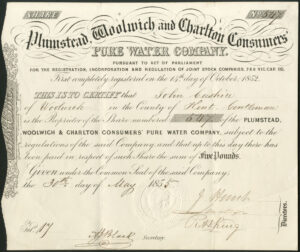 Plumstead, Woolwich and Charlton Consumers'
PURE WATER COMPANY.
PURSUANT TO ACT OF PARLIAMENT
FOR THE REGISTRATION, INCORPORATION AND REGULATION OF JOINT STOCK COMPANIES, 7 & 8 VIC. CAP. 110.
First completely registered on the 14th day of October, 1852.
THIS IS TO CERTIFY that John
of Woolwich in the County of Kent, Gentleman
is the Proprietor of the Share numbered of the PLUMSTEAD,
WOOLWICH & CHARLTON CONSUMERS' PURE WATER COMPANY, subject to the
regulations of the said Company, and that up to this day there has
been paid in respect of such Share the sum of FIVE POUNDS.
Given under the Common Seal of the said Company,
the 30th day of May 1855
Secretary.
Directors.